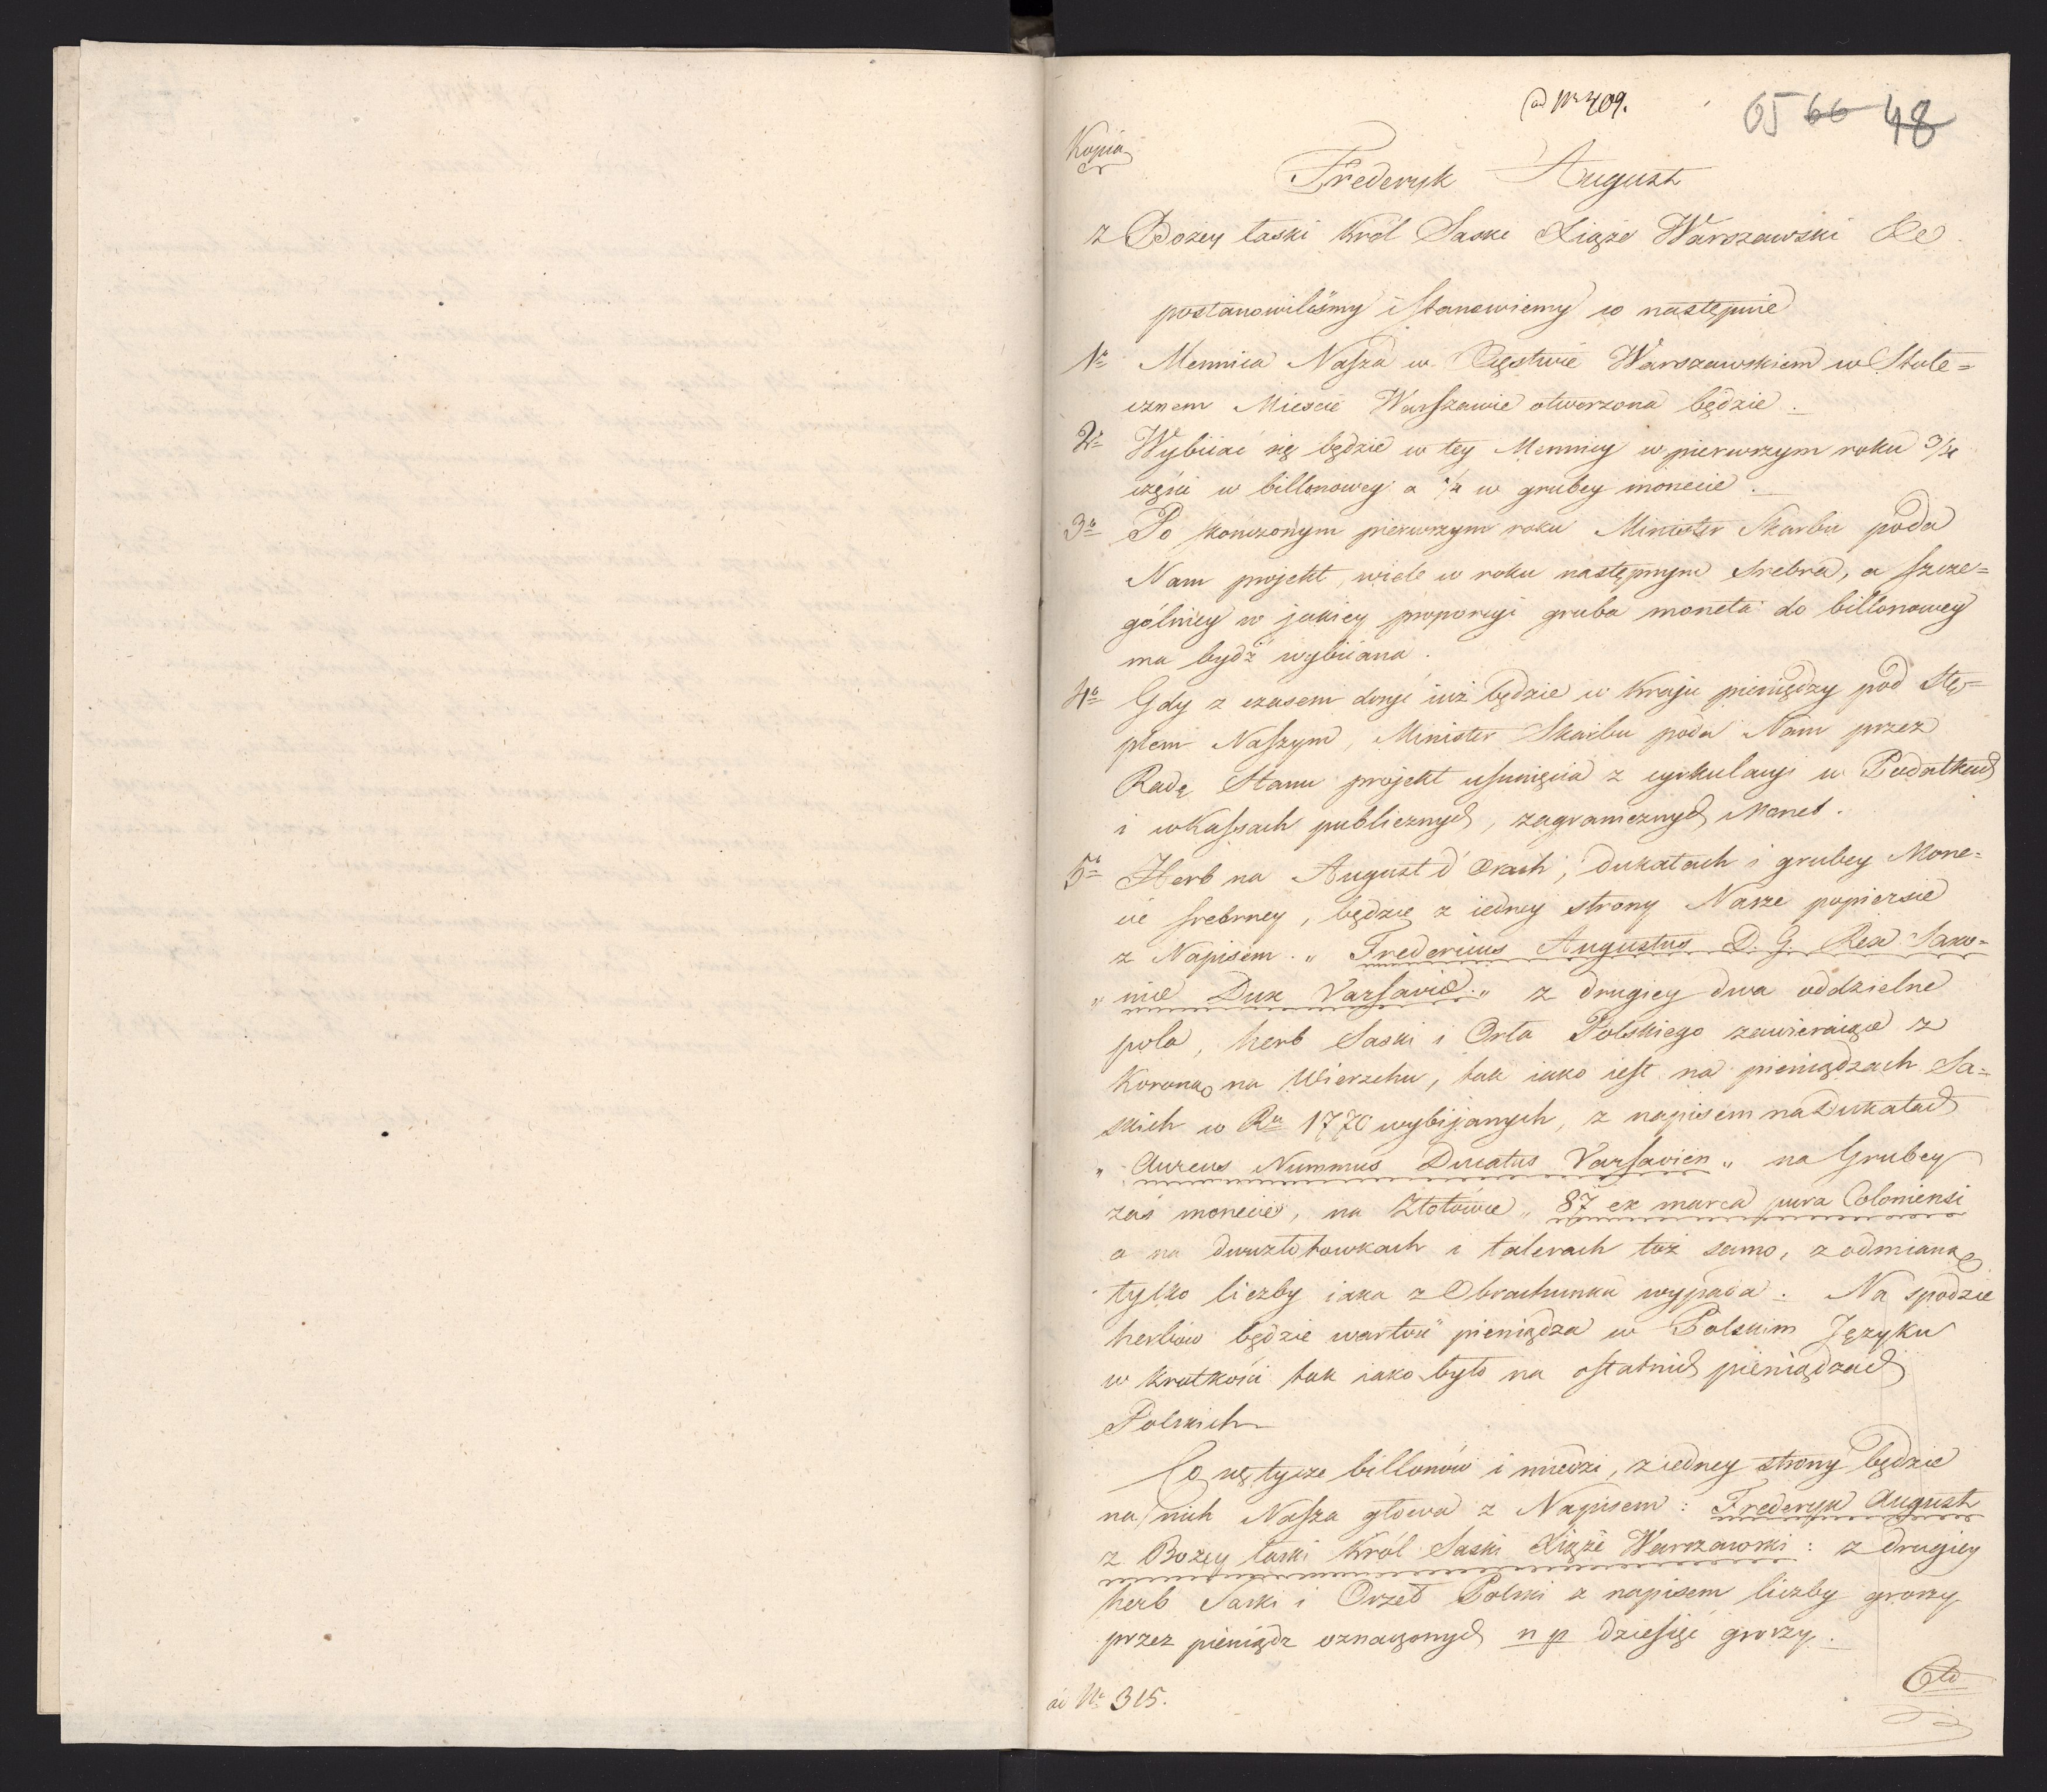 ad Nr 409.
65 66 48
Kopia
Frederyk August
z Bożey łaski Król Saski Xiąże Warszawski &c
postanowiliśmy i stanowiemy co następuie
1o Mennica Nasza w Xięstwie Warszawskiem w Stołe=
cznem Mieście Warszawie otworzona będzie.
2o Wybiiać się będzie w tey Mennicy w pierwszym roku 3/4
części w billonowey a 1/4 w grubey monecie.
3o Po skończonym pierwszym roku Minister Skarbu poda
Nam projekt, wiele w roku następnym srebra, a szcze=
gólniey w jakiey proporcyi gruba moneta do billonowey
ma bydź wybiiana.
4o Gdy z czasem dosyć iuż będzie w Kraju pieniędzy pod stę=
plem Naszym, Minister Skarbu poda Nam przez
Radę Stanu projekt usunięcia z cyrkulacyi w Podatkach
i w Kassach publicznych, zagranicznych Monet.
5o Herb na August d'orach, Dukatach i grubey Mone=
cie srebrney, będzie z iedney strony Nasze popiersie
z Napisem „ Fredericus Augustus D. G. Rex Saxo=
„ nie Dux Varsavie „ z drugiey dwa oddzielne
pola, herb Saski i Orła Polskiego zawieraiące z
Koroną na Wierzchu, tak iako iest na pieniądzach Sa=
skich w Ru 1770 wybijanych, z napisem na Dukatach
„ Aureus Nummus Ducatus Varsavien „ na Grubey
zaś monecie, na Złotówce „ 87 ex marca pura Coloniensi
a na dwuzłotowkach i talerach toż samo, z odmianą
tylko liczby iaka z Obrachunku wypada. Na spodzie
herbów będzie wartość pieniądza w Polskim Języku
w krótkości tak iako było na ostatnich pieniądzach
Polskich
Co się tycze billonów i miedzi, z iedney strony będzie
na nich Nasza głowa z Napisem: Frederyk August
z Bożey łaski Król Saski Xiąże Warszawski: z drugiey
herb Saski i Orzeł Polski z napisem liczby groszy
przez pieniądz oznaczonych np dziesięć groszy.
ad Nr 315.